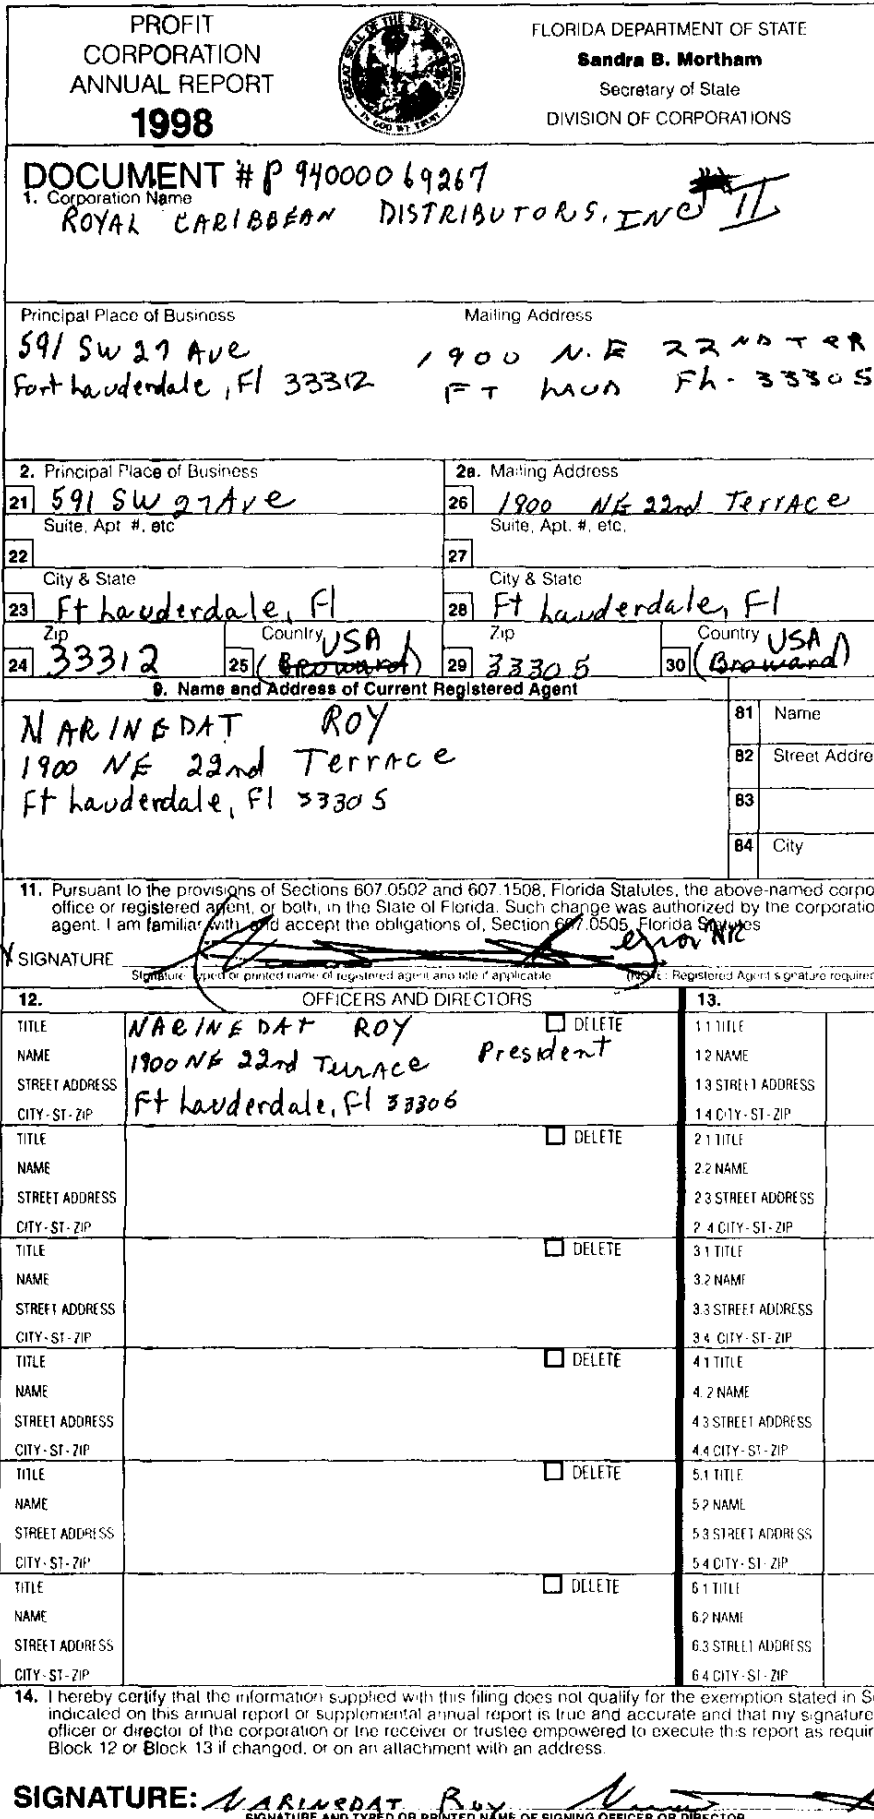 PROFIT
CORPORATION
ANNUAL REPORT
1998
GREAT SEAL OF THE STATE OF FLORIDA
IN GOD WE TRUST
FLORIDA DEPARTMENT OF STATE
Sandra B. Mortham
Secretary of State
DIVISION OF CORPORATIONS
DOCUMENT # P94000069267
1. Corporation Name
ROYAL CARIBBEAN DISTRIBUTORS, INC II
Principal Place of Business
Mailing Address
591 SW 27 Ave
1900 N.E 22ND TER
Fort Lauderdale, Fl 33312
FT LAUD FL. 33305
2. Principal Place of Business
2a. Mailing Address
21 591 SW 27 Ave
26 1900 NE 22nd Terrace
Suite, Apt #, etc
Suite, Apt. #, etc.
22
27
City & State
City & State
23 Ft Lauderdale, Fl
28 Ft Lauderdale, Fl
Zip
Country
Zip
Country
24 33312
25 USA (Broward)
29 33305
30 USA (Broward)
9. Name and Address of Current Registered Agent
NARINEDAT ROY
1900 NE 22nd Terrace
Ft Lauderdale, Fl 33305
81 Name
82 Street Addre
83
84 City
11. Pursuant to the provisions of Sections 607.0502 and 607.1508, Florida Statutes, the above-named corpo
office or registered agent, or both, in the State of Florida. Such change was authorized by the corporatio
agent. I am familiar with, and accept the obligations of, Section 607.0505, Florida Statutes
error NR
X SIGNATURE
Signature typed or printed name of registered agent and title if applicable
(NOTE: Registered Agent signature require
12. OFFICERS AND DIRECTORS
13.
TITLE
NAME
STREET ADDRESS
CITY-ST-ZIP
NARINEDAT ROY
President
1900 NE 22nd Terrace
Ft Lauderdale, Fl 33306
DELETE
1 1 TITLE
1 2 NAME
1 3 STREET ADDRESS
1 4 CITY-ST-ZIP
TITLE
NAME
STREET ADDRESS
CITY-ST-ZIP
DELETE
2 1 TITLE
2.2 NAME
2 3 STREET ADDRESS
2 4 CITY-ST-ZIP
TITLE
NAME
STREET ADDRESS
CITY-ST-ZIP
DELETE
3 1 TITLE
3.2 NAME
3.3 STREET ADDRESS
3 4 CITY-ST-ZIP
TITLE
NAME
STREET ADDRESS
CITY-ST-ZIP
DELETE
4 1 TITLE
4. 2 NAME
4 3 STREET ADDRESS
4.4 CITY-ST-ZIP
TITLE
NAME
STREET ADDRESS
CITY-ST-ZIP
DELETE
5.1 TITLE
5 2 NAME
5 3 STREET ADDRESS
5 4 CITY-ST-ZIP
TITLE
NAME
STREET ADDRESS
CITY-ST-ZIP
DELETE
6 1 TITLE
6.2 NAME
6.3 STREET ADDRESS
6 4 CITY-ST-ZIP
14. I hereby certify that the information supplied with this filing does not qualify for the exemption stated in S
indicated on this annual report or supplemental annual report is true and accurate and that my signature
officer or director of the corporation or the receiver or trustee empowered to execute this report as requir
Block 12 or Block 13 if changed, or on an attachment with an address.
SIGNATURE: NARINEDAT ROY
SIGNATURE AND TYPED OR PRINTED NAME OF SIGNING OFFICER OR DIRECTOR